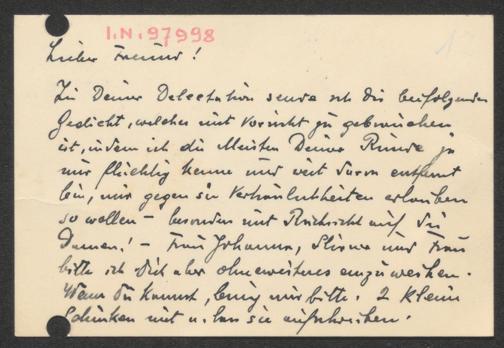 I.N. 97998
Lieber Freund!
Zu Deiner Delectation sende ich dir beifolgendes
Gedicht, welches mit Vorsicht zu gebrauchen
ist, indem ich die Meisten Deiner Runde ja
nur flüchtig kenne und weit davon entfernt
bin, mir gegen sie Vertraulichkeiten erlauben
zu wollen – besonders mit Rücksicht auf die
Damen! – Frau Johanna, und Frau
bitte ich Dich aber ohneweiteres einzuweihen.
Wenn du kannst, bring mir bitte 2 kleine
Schinken mit u. lass sie aufschreiben.